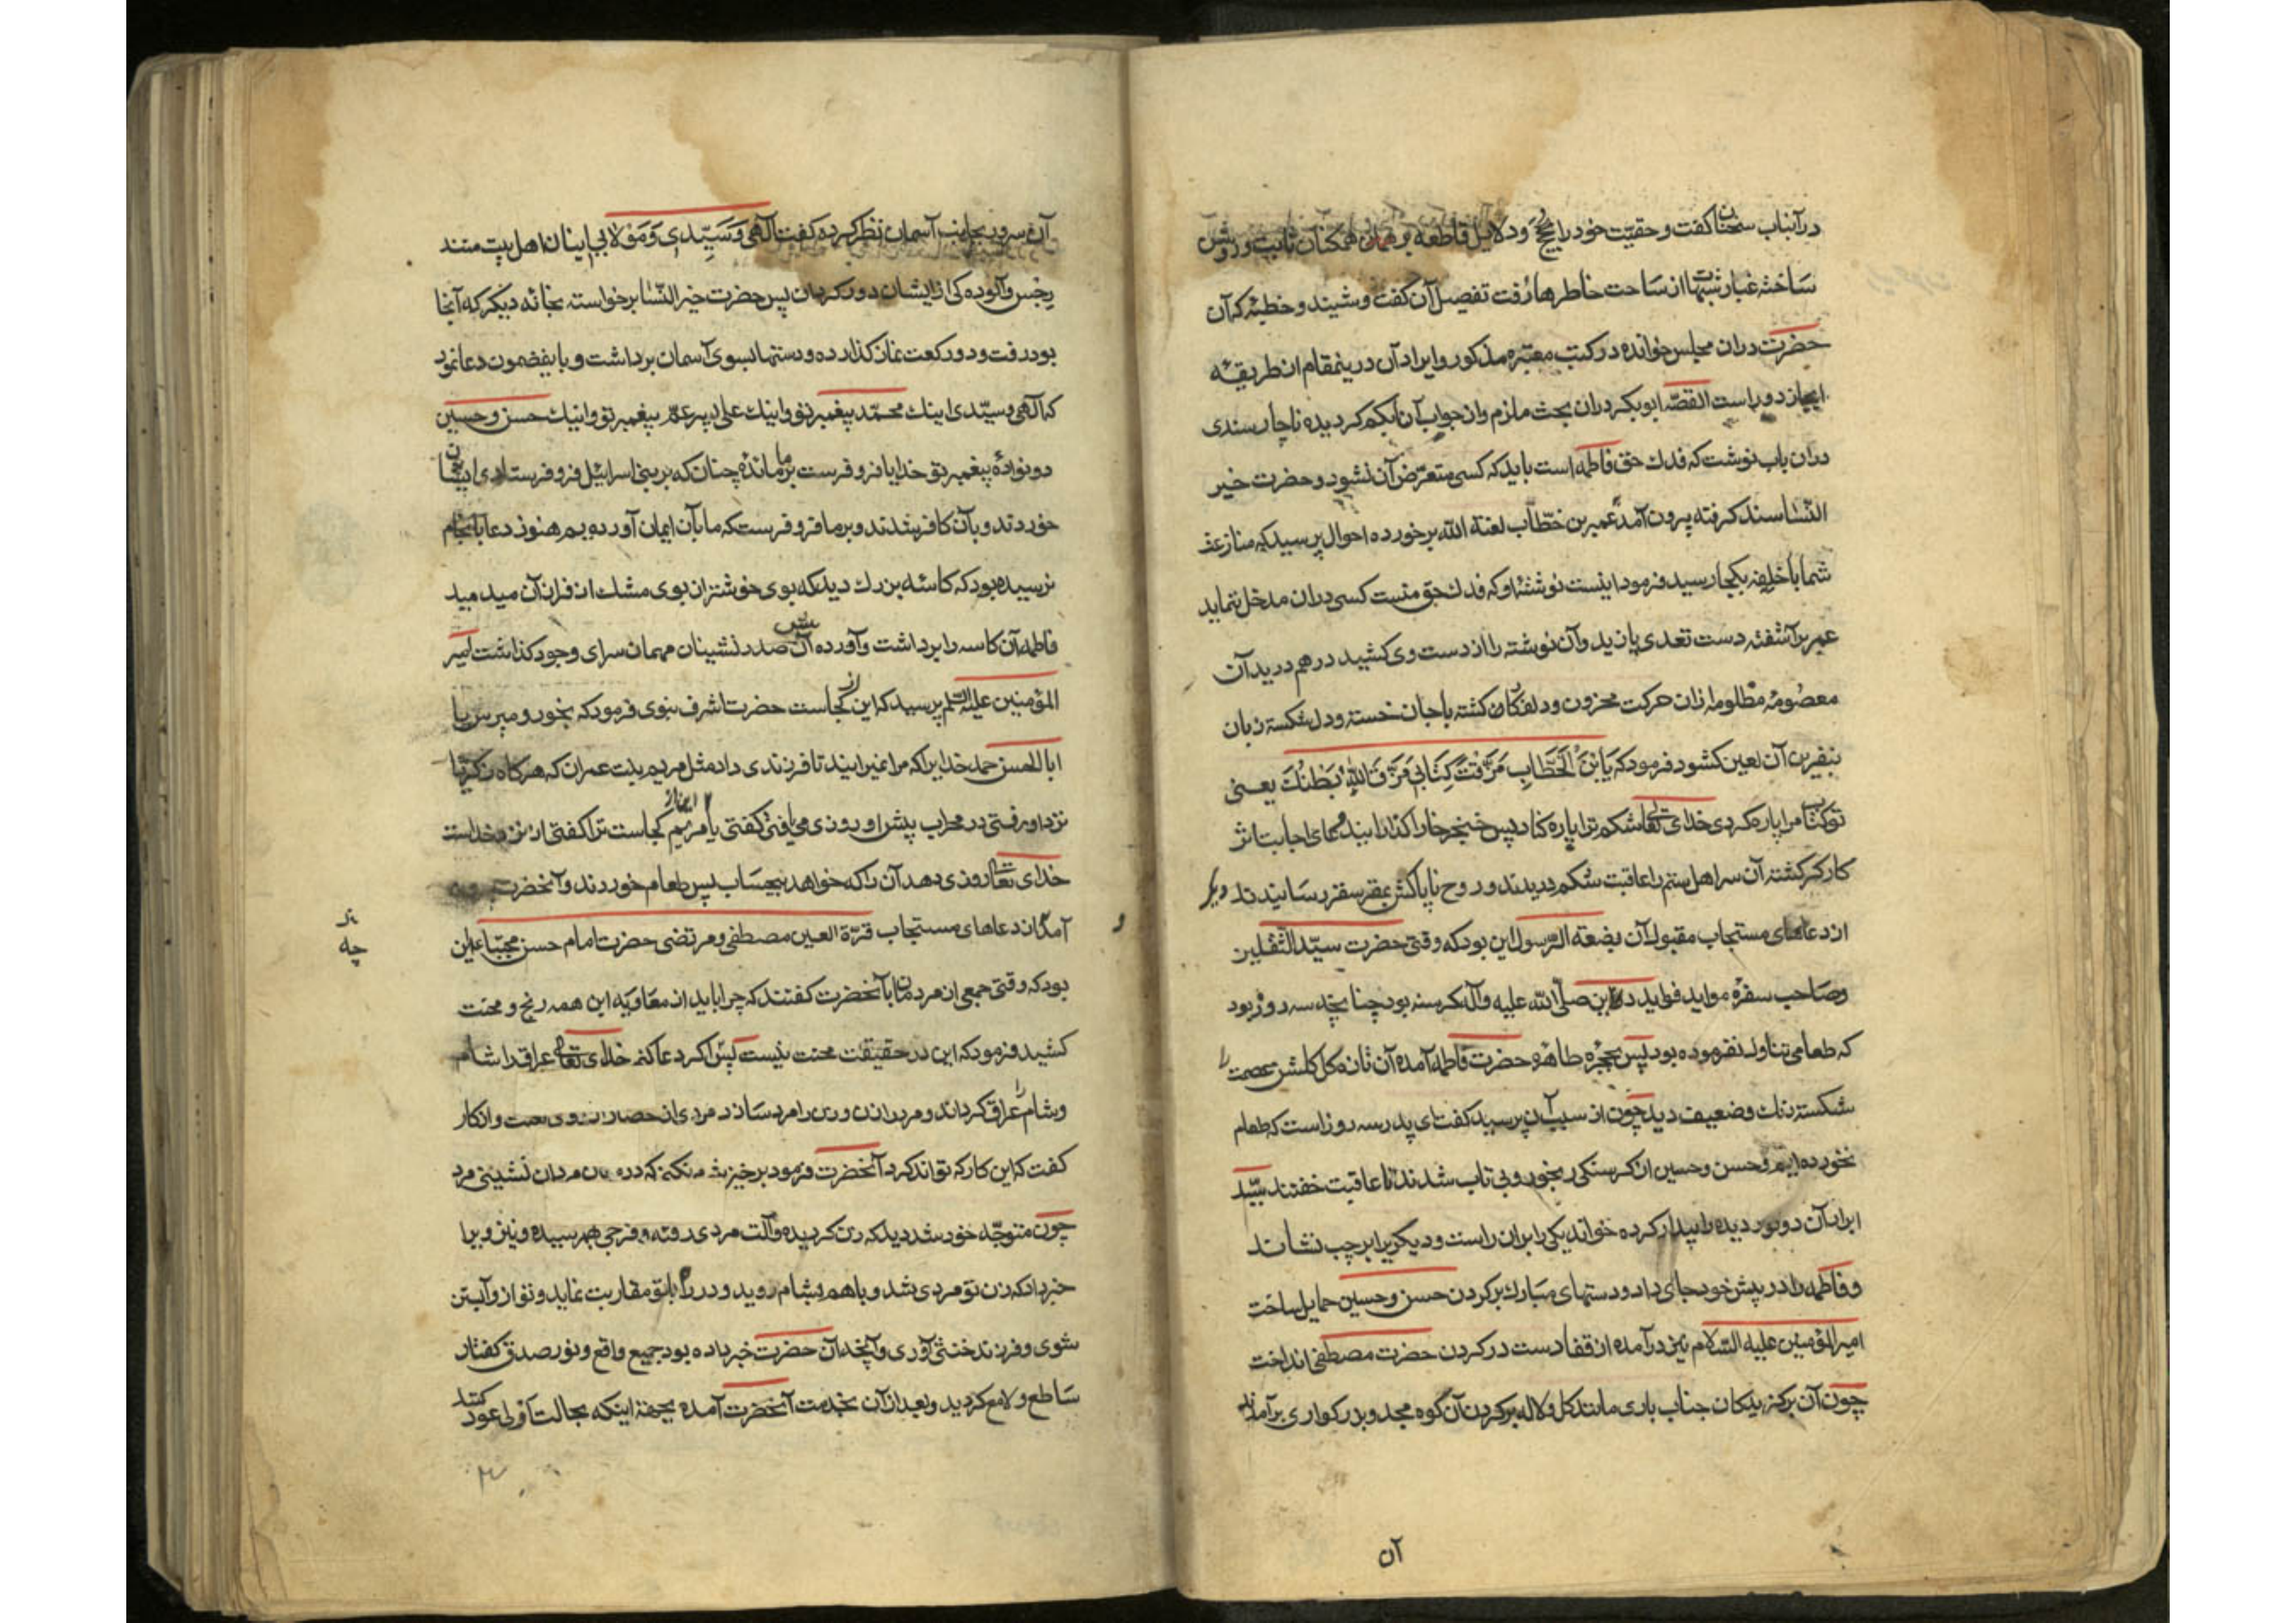 درآنباب سخنان گفت و حقیّت خود را بحجج و دلایل قاطعه بر همکنان ثابت و روشن
ساخته غبار شبهتها از ساحت خاطرها رُفت تفصیل آن گفت و شنید و خطبهٔ که آن
حضرت دران مجلس خوانده در کتب معتبره مذکور و ایراد آن درینمقام از طریقهٔ
ایجاز دور است القصّه ابوبکر دران بحث ملزم و از جواب آن ابکم گردیده ناچار سندی
دران باب نوشت که فدك حق فاطمه است باید که کسی متعرّض آن نشود و حضرت خیر
النّسا سند گرفته بیرون آمد عمر بن خطّاب لعنة الله برخورده احوال پرسید که منازعهٔ
شما با خلیفه بکجا رسید فرمود اینست نوشتهٔ او که فدك حق منست کسی دران مدخل ننماید
عمر برآشفته دست تعدی یازید و آن نوشته را از دست وی کشید در هم درید آن
معصومهٔ مظلومه ازان حرکت محزون و دلفکار گشته با جان خسته و دل شکسته زبان
بنفرین آن لعین کشود فرمود که یَابْنَ الْخَطَّابِ مَزَّقْتَ کِتَابِی مَزَّقَ اللهُ بَطْنَكَ یعنی
تو کتاب مرا پاره کردی خدای تعالی شکم ترا پاره کناد پس خنجر خارا گذار ابن دعای اجابت اثر
کارگر گشته آن سر اهل ستم را عاقبت شکم دریدند و روح ناپاکش بقعر سقر رسانیدند دیگر
از دعاهای مستجاب مقبول آن بضعة الرّسول این بود که وقتی حضرت سیّد الثقلین
و صاحب سفرهٔ مواید فواید دارین صلّی الله علیه وآله گرسنه بود چنانچه سه روز بود
که طعامی تناول نفرموده بود پس بحجرهٔ طاهره حضرت فاطمه آمده آن تازه گل گلشن عصمت را
شکسته رنك و ضعیف دید چون از سبب آن پرسید گفت ای پدر سه روز است که طعام
نخورده‌ایم و حسن و حسین از گرسنگی رنجور و بی تاب شدند تا عاقبت خفتند سیّد
ابرار آن دو نور دیده را بیدار کرده خواند یکی را بر ران راست و دیگریرا بر چپ نشاند
و فاطمه را در پیش خود جای داد و دستهای مبارك بر گردن حسن و حسین حمایل ساخت
امیرالمؤمنین علیه السّلام نیز درآمده از قفا دست در گردن حضرت مصطفی انداخت
چون آن برگزیدگان جناب باری مانند گل و لاله بر گردن آن کوه مجد و بزرگواری برآمدند
آن
آن سرور بجانب آسمان نظر کرده گفت الٓهی وَ سَیِّدِی وَ مَوْلایَ اینان اهل بیت منند
رجس و آلوده‌کی از ایشان دور گردان پس حضرت خیر النّسا برخواسته بخانه دیگر که آنجا
بود رفت و دو رکعت نماز گذارده و دستها بسوی آسمان برداشت و باینمضمون دعا نمود
که الٓهی و سیّدی اینك محمّد پیغمبر تو و اینك علی پسر عمّ پیغمبر تو و اینك حسن و حسین
دو نوادهٔ پیغمبر تو خدایا فرو فرست بر ما مائده چنان که بر بنی اسرائیل فرو فرستادی ایشان
خوردند و بآن کافر شدند و بر ما فرو فرست که ما بآن ایمان آورده‌یم هنوز دعا بانجام
نرسیده بود که کاسهٔ بزرك دید که بوی خوشتر از بوی مشك از فراز آن میدمید
فاطمه آن کاسه را برداشت و آورده پیش آن صدر نشینان مهمان سرای وجود گذاشت امیر
المؤمنین علیه السّلم پرسید که این از کجاست حضرت اشرف نبوی فرمود که بخور و مپرس یا
ابا الحسن حمد خدایرا که مرا نمیرانید تا فرزندی داد مثل مریم بنت عمران که هرگاه زکریّا
نزد او رفتی در محراب پیش او روزی می‌یافتی گفتی یا مریم این از کجاست ترا گفتی از نزد خداست
خدای تعالی روزی دهد آن را که خواهد بیحساب پس طعام خوردند و آنحضرت بیرون
آمد از دعاهای مستجاب قرّة العین مصطفی و مرتضی حضرت امام حسن مجتبا این
بود که وقتی جمعی از مردمان با آنحضرت گفتند که چرا باید از معاویه این همه رنج و محنت
کشید فرمود که این در حقیقت محنت نیست پس اگر دعا کنم خدای تعالی عراق را شام
و شام را عراق گرداند و مرد را زن و زن را مرد سازد مردی از حضار از روی تعجب و انکار
گفت که این کار که تواند کرد آنحضرت فرمود برخیز شرم نمیکنی که در میان مردان نشینی مرد
چون متوجّه خود شد دید که زن گردیده و آلت مردی رفته و فرجی بهم رسیده و نیز ویرا
خبر داد که زن تو مردی شد و باهم بشام روید و در راه با تو مقاربت نماید و تو از و آبستن
شوی و فرزند خنثی آوری و آنچه آن حضرت خبر داده بود جمیع واقع و نور صدق گفتار
ساطع و لامع گردید و بعد از آن بخدمت آنحضرت آمده بجهة اینکه بحالت اولی عود کنند